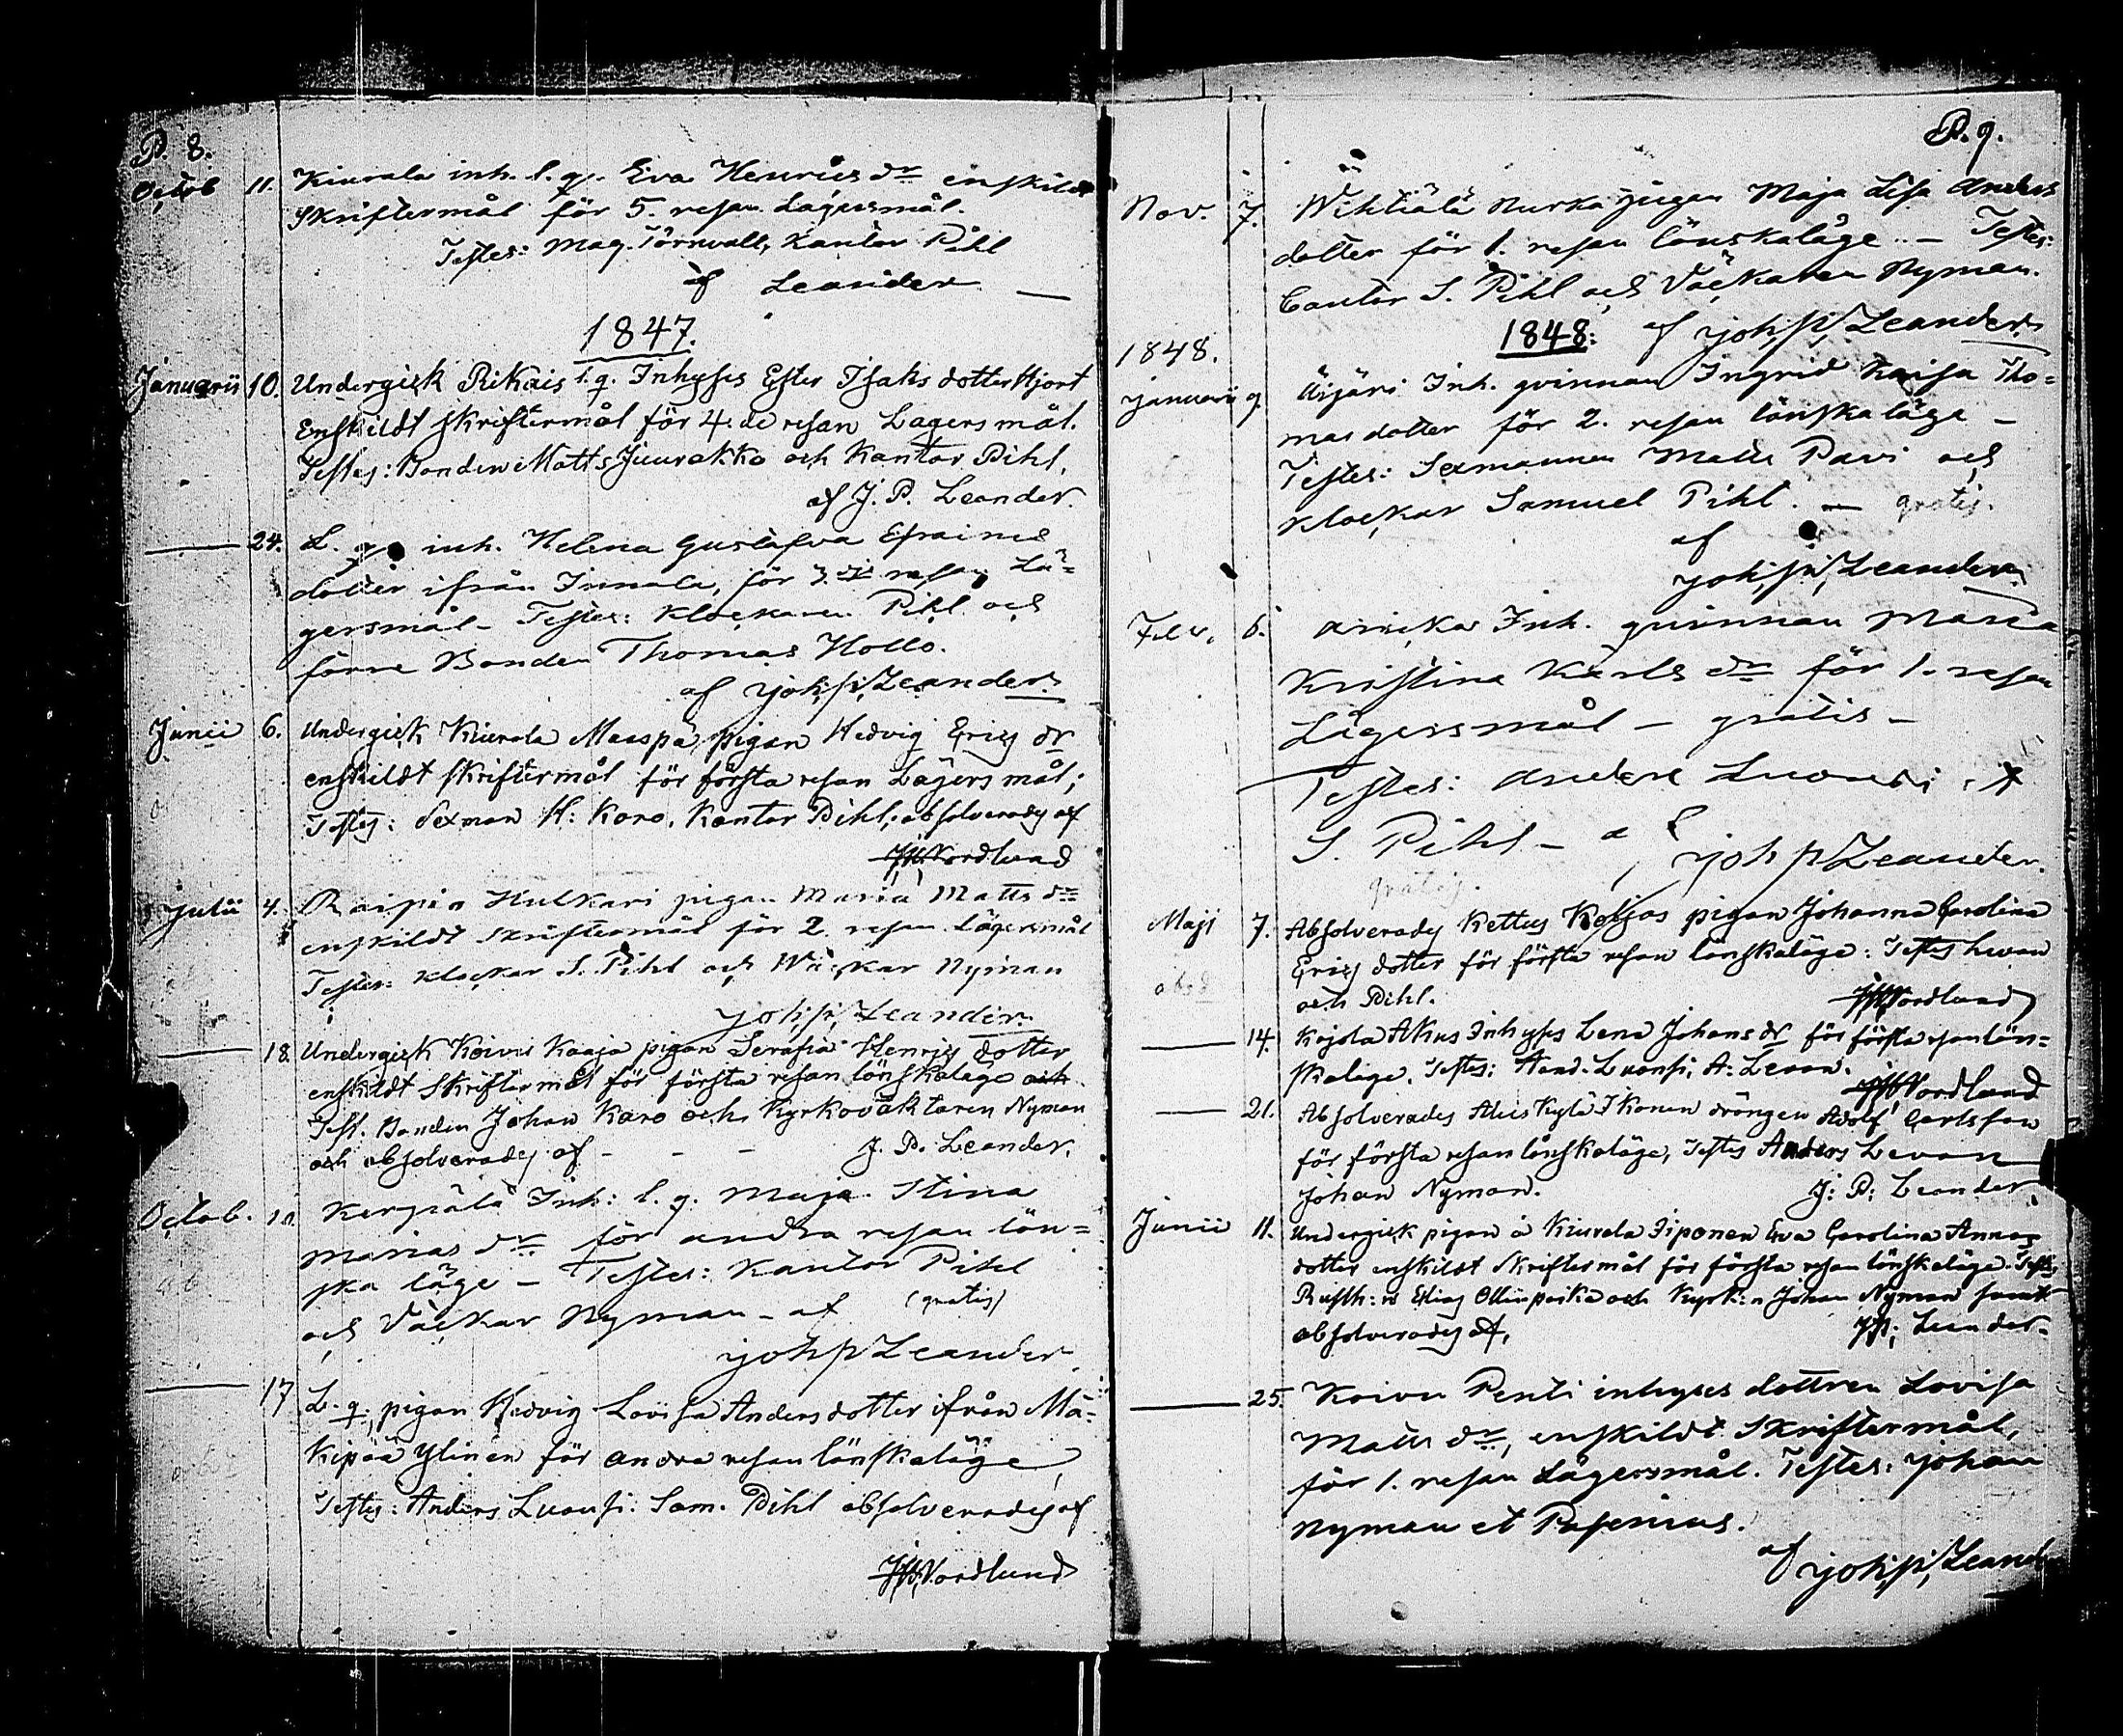 P. 8.
Octob 11. Kiurala inh. l. q. Eva Henrics dr enskildt
skriftermål för 5. resan Lägersmål.
Testes: Mag. Törnvall, Kantor Pihl
af Leander —
1847.
Januarii 10. Undergick Rikais l. q. Inhyses Ester Isaks dotter Hjort
Enskildt skriftermål för 4:de resan Lagersmål.
Testes: Bonden Matts Juurakko och Kantor Pihl,
af J. P. Leander.
— 24. L. q. inh. Helena Gustafva Efraims
dotter ifrån Innala, för 3. resan Lä=
gersmål – Testes: Klockaren Pihl och
förre Bonden Thomas Hollo.
af Joh. P. Leander.
Junii 6. Undergick Kiurala Maaspä pigan Hedvig Erics dr
enskildt skriftermål för första resan Lägersmål;
Testes: Sexman H: Karo, Kantor Pihl; absolverades af
Nordlund
Julii 4. Raipia Hulkari pigan Maria Matts dr
enskildt skriftermål för 2. resan Lägersmål
Testes: Klockar S. Pihl och Wäckar Nyman
Joh. P. Leander.
— 18. Undergick Koivu Kaaja pigan Serafia Henrics dotter
enskildt Skriftermål för första resan lönskaläge och
Test. Bonden Johan Karo och Kyrkoväktaren Nyman
och absolverades af – – – J. P. Leander.
Octob. 10. Kerpälä Inh: l. q. Maja Stina
Marias dr för andra resan lön=
ska läge – Testes: Kantor Pihl
och Väckar Nyman – af (gratis)
Joh P Leander
— 17 L. q. pigan Hedvig Lovisa Anders dotter ifrån Mä=
kipää Ylinen för andra resan lönskaläge,
Testes: Anders Luansi: Sam. Pihl absolverades af
Nordlund
P. 9.
Nov. 7. Wihtiälä Nurka pigan Maja Lisa Anders
dotter för 1. resan lönskaläge. – Testes:
Cantor S. Pihl och Väckaren Nyman.
1848: af Joh. P. Leander
1848.
Januarii 9. Äijäri Inh. qvinnan Ingrid Kaisa Tho=
mas dotter för 2. resan lönskaläge –
Testes: Sexmannen Matts Pavi och
Klockar Samuel Pihl. — gratis.
af
Joh. P. Leander.
Febr. 6. Anicka Inh. quinnan Maria
Kristina Karls dr för 1. resan
Lägersmål – gratis –
Testes: Anders Luansi, &
S. Pihl – af Joh P Leander.
gratis.
Maji 7. Absolverades Kettus pigan Johanna Carolina
Erics dotter för första resan lönskaläge: Testes Levan
och Pihl. Nordlund
— 14. Kojola Akus Inhyses Lena Johans dr för första resan löns=
kaläge. Testes: And. Luansi; A. Levan.
Nordlund
— 21. Absolverades Alus Kylä Ikonen drängen Adolf Carlsson
för första resan lönskaläge, Testes Anders Levan
Johan Nyman. J: P: Leander
Junii 11. Undergick pigan å Kiurala Iiponen Eva Carolina Annas
dotter enskildt Skriftermål för första resan lönskaläge. Testes
Rusth: n Elias Ollinpoika och Kyrk: n Johan Nyman samt
absolverades af, J. P. Leander.
— 25. Koivu Penti inhyses dottren Lovisa
Matts dr, enskildt skriftermål,
för 1. resan Lägersmål. Testes: Johan
Nyman et Pasenius.
af Joh. P. Leander